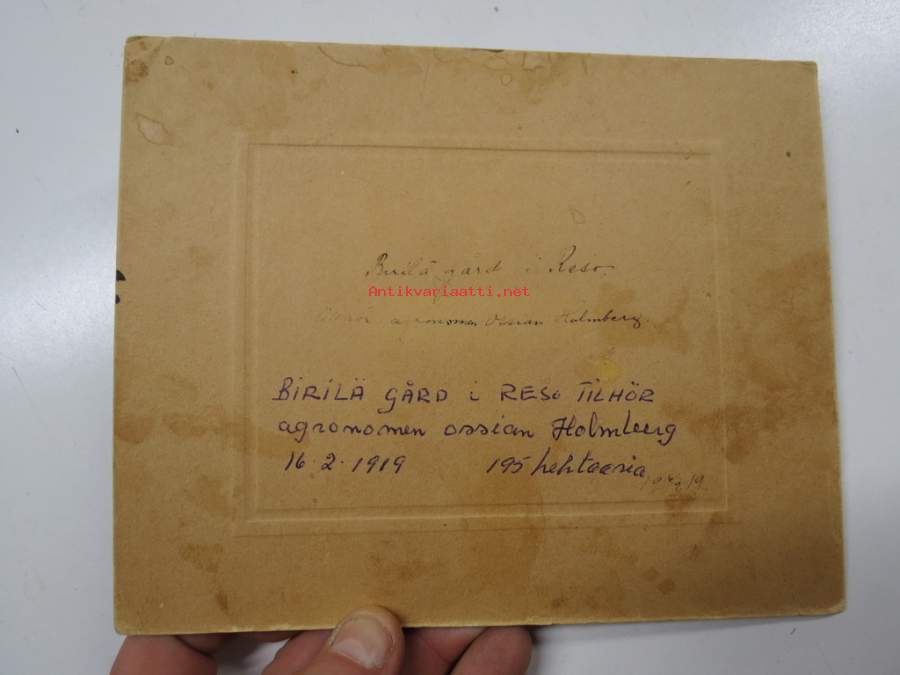 Birilä gård i Reso,
Antikvariaatti.net
Tillhör agronomen Ossian Holmberg.
BIRILÄ GÅRD i RESO TILHÖR
agronomen ossian Holmberg
16.2.1919 195 hehtaaria